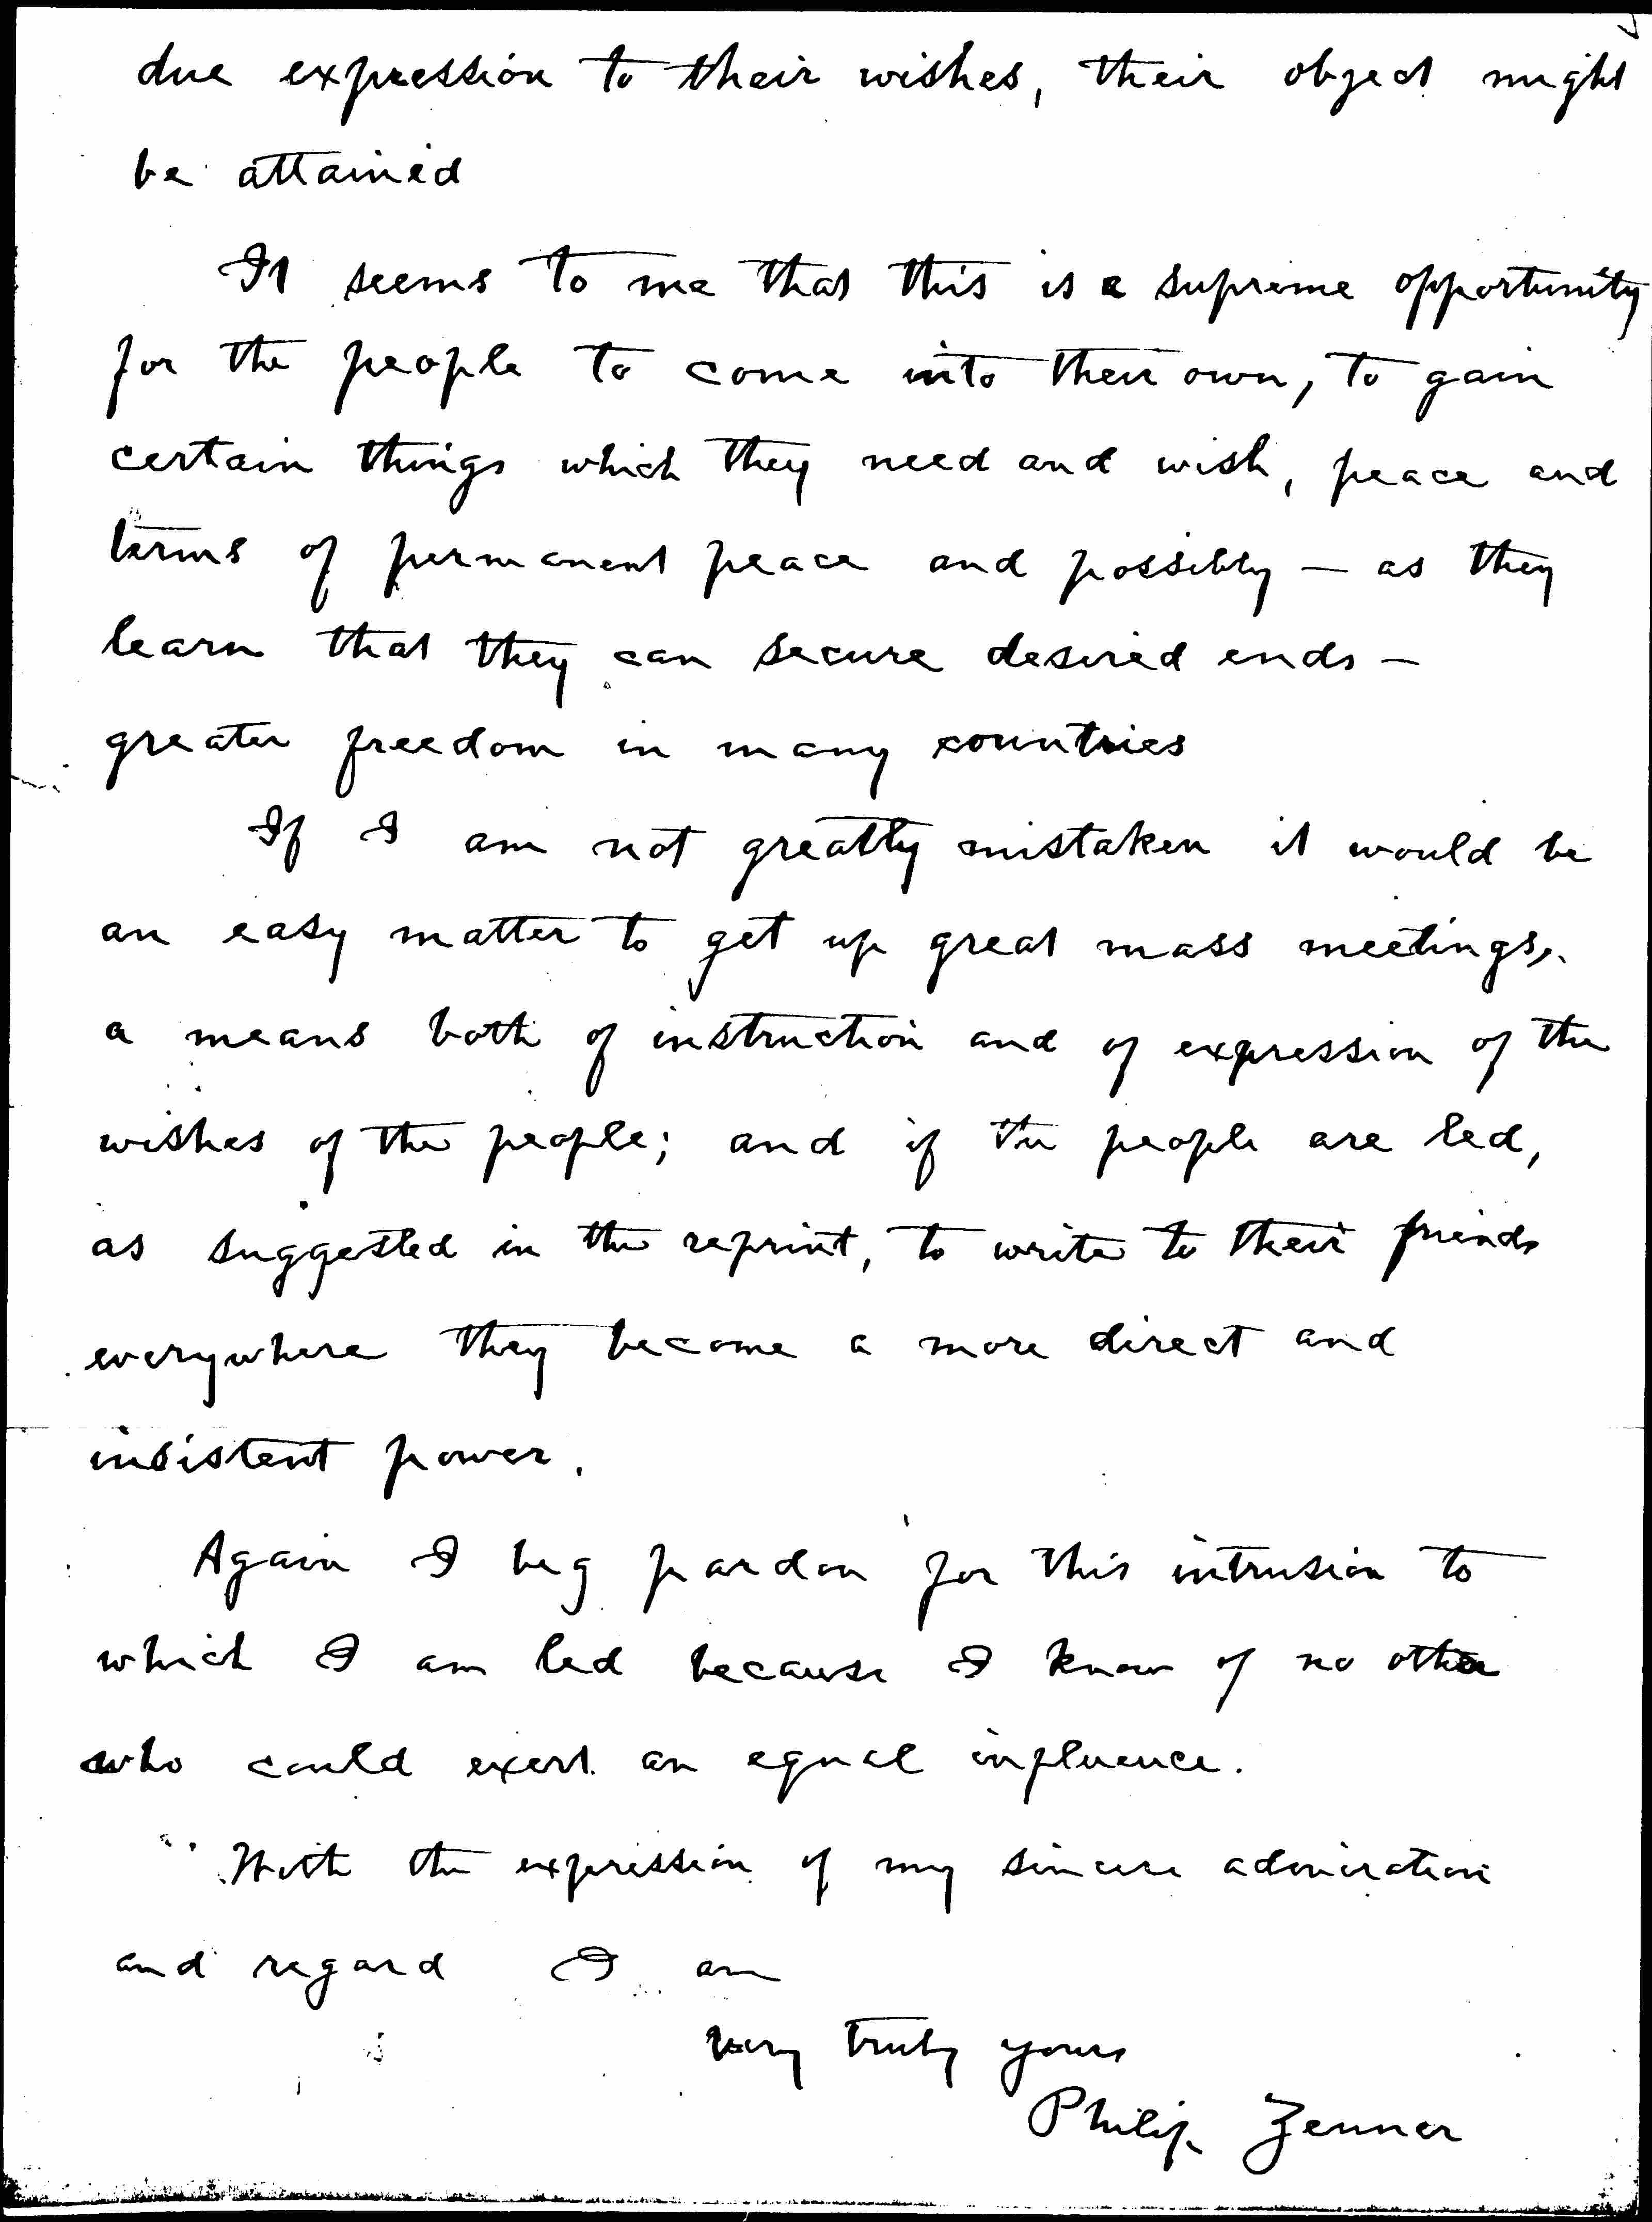 due expression to their wishes, their object might
be attained
It seems to me that this is a supreme opportunity
for the people to come into their own, to gain
certain things which they need and wish, peace and
terms of permanent peace and possibly — as they
learn that they can secure desired ends —
greater freedom in many countries
If I am not greatly mistaken it would be
an easy matter to get up great mass meetings,
a means both of instruction and of expression of the
wishes of the people; and if the people are led,
as suggested in the reprint, to write to their friends
everywhere they become a more direct and
insistent power.
Again I beg pardon for this intrusion to
which I am led because I know of no other
who could exert an equal influence.
With the expression of my sincere admiration
and regard I am
Very truly yours
Philip Zenner